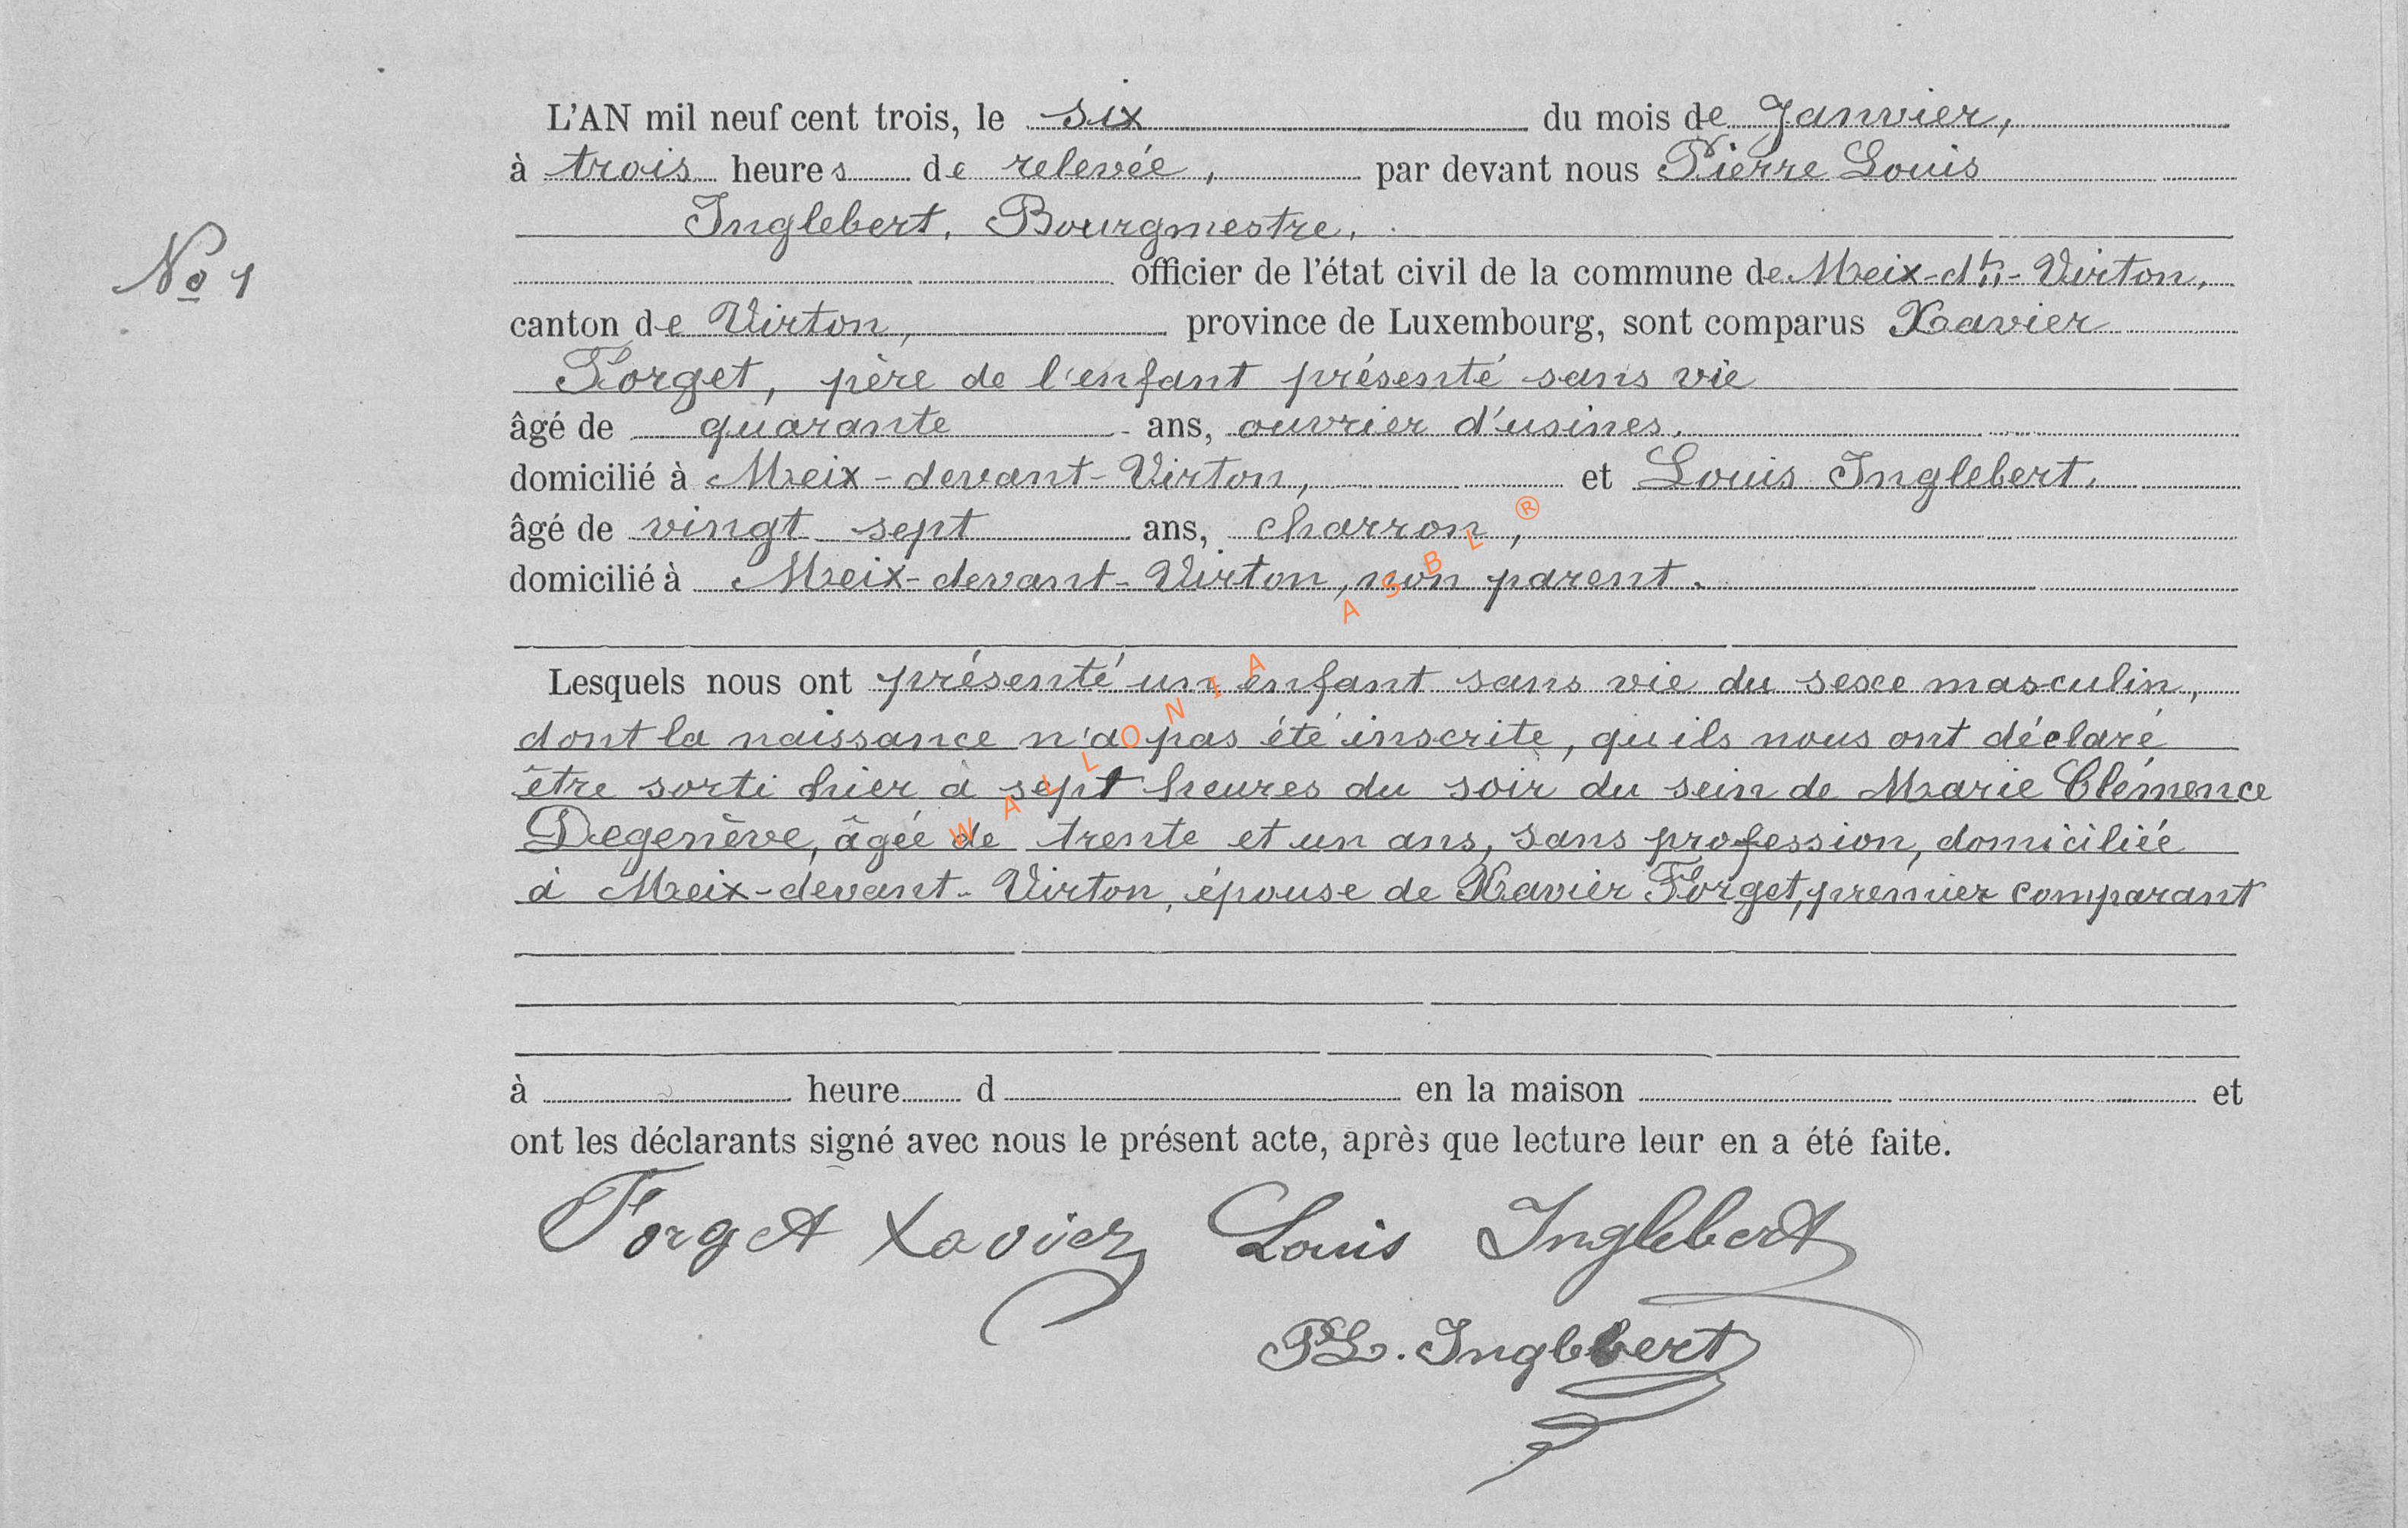 L'AN mil neuf cent trois, le six du mois de Janvier,
à trois heures de relevée, par devant nous Pierre Louis
Inglebert, Bourgmestre,
No 1
officier de l'état civil de la commune de Meix-dt-Virton,
canton de Virton, province de Luxembourg, sont comparus Xavier
Forget, père de l'enfant présenté sans vie
âgé de quarante ans, ouvrier d'usines,
domicilié à Meix-devant-Virton, et Louis Inglebert,
âgé de vingt sept ans, charron,
domicilié à Meix-devant-Virton, non parent.
Lesquels nous ont présenté un enfant sans vie du sexe masculin,
dont la naissance n'a pas été inscrite, qu'ils nous ont déclaré
être sorti hier à sept heures du soir du sein de Marie Clémence
Degenève, âgée de trente et un ans, sans profession, domiciliée
à Meix-devant-Virton, épouse de Xavier Forget, premier comparant
à heure d en la maison et
ont les déclarants signé avec nous le présent acte, après que lecture leur en a été faite.
Forget Xavier Louis Inglebert
PL. Inglebert
WALLONIA ASBL ®